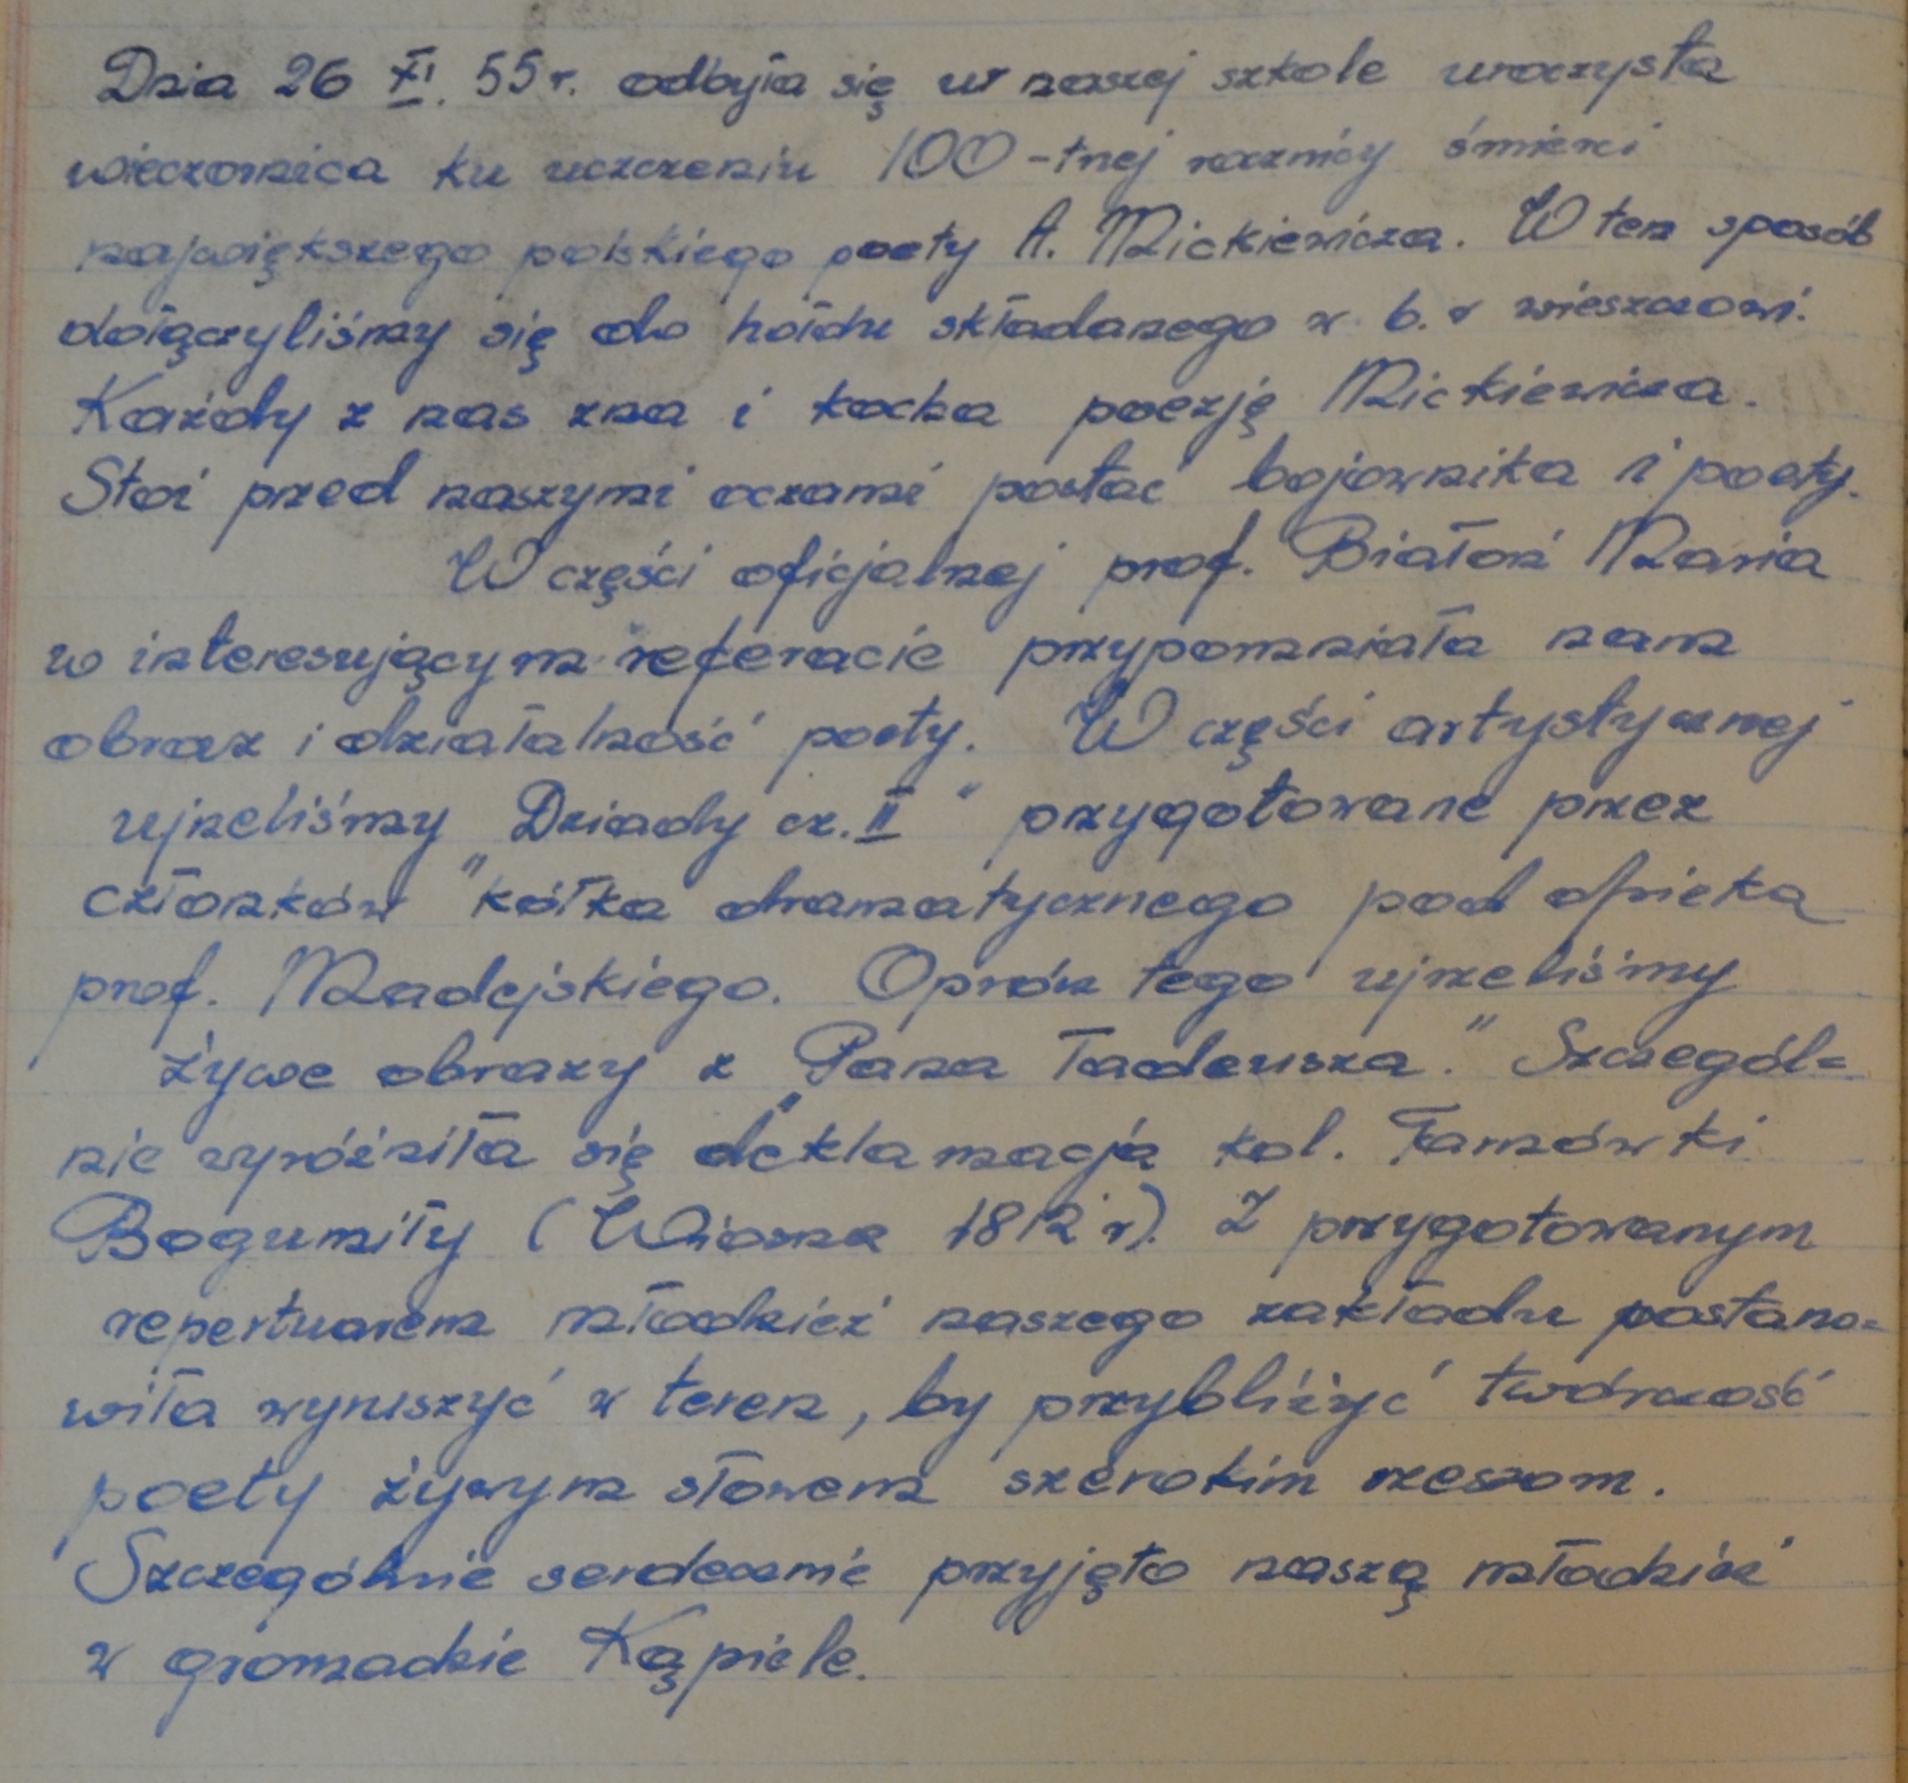 Dnia 26 XI. 55 r. odbyła się w naszej szkole uroczysta
wieczornica ku uczczeniu 100-tnej rocznicy śmierci
największego polskiego poety A. Mickiewicza. W ten sposób
dołączyliśmy się do hołdu składanego w b. r wieszczowi.
Każdy z nas zna i kocha poezję Mickiewicza.
Stoi przed naszymi oczami postać bojownika i poety.
W części oficjalnej prof. Białoń Maria
w interesującym referacie przypomniała nam
obraz i działalność poety. W części artystycznej
ujrzeliśmy „Dziady cz. II" przygotowane przez
członków kółka dramatycznego pod opieką
prof. Madejskiego. Oprócz tego ujrzeliśmy
żywe obrazy z „Pana Tadeusza." Szczegól=
nie wyróżniła się deklamacja kol.
Bogumiły (Wiosna 1812 r). Z przygotowanym
repertuarem młodzież naszego zakładu postano=
wiła wyruszyć w teren, by przybliżyć twórczość
poety żywym słowem szerokim rzeszom.
Szczególnie serdecznie przyjęto naszą młodzież
w gromadzie Kąpiele.